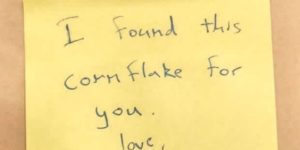 I found this
cornflake for
you.
love,